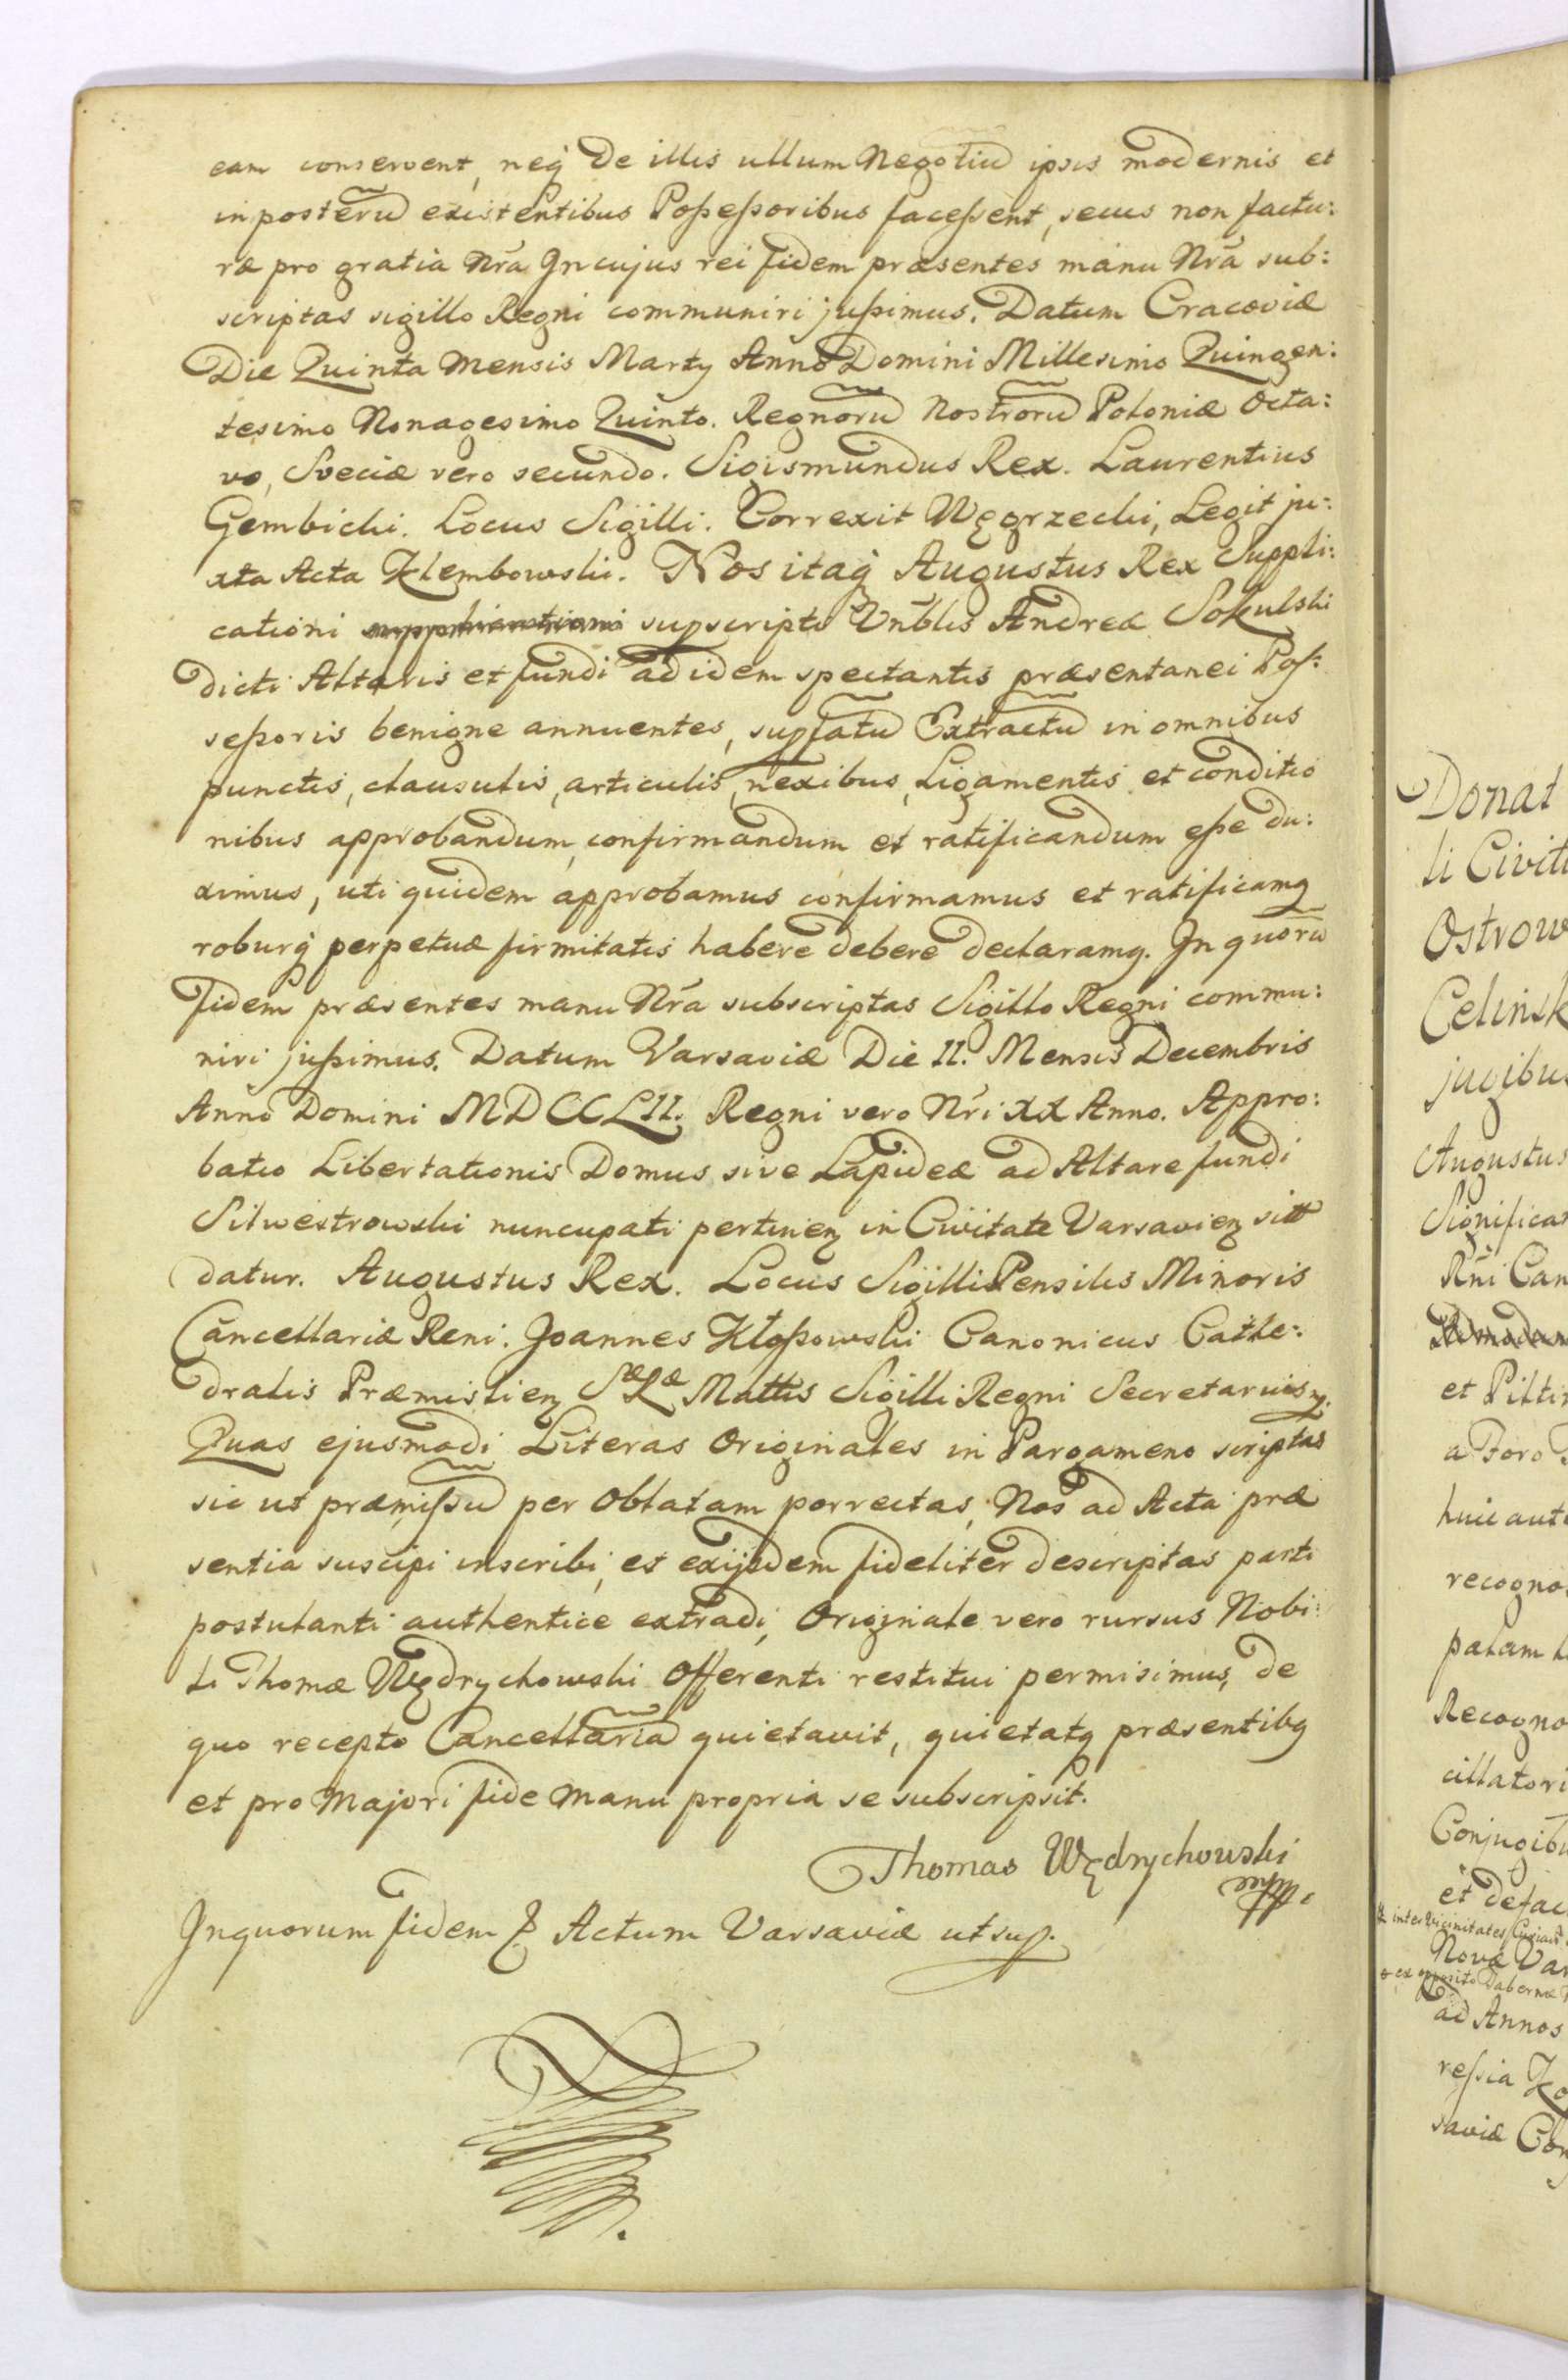 eam conservent, neq̃ de illis ullum Negotiũ ipsis modernis et
in posterũ existentibus Poßeßoribus faceßent, secus non factu:
ræ pro gratia Nrã. In cujus rei fidem præsentes manu Nrã sub:
scriptas sigillo Regni communiri jußimus. Datum Cracoviæ
Die Quinta Mensis Martij Anno Domini Millesimo Quingen:
tesimo Nonagesimo Quinto. Regnorũ Nostrorũ Poloniæ Octa:
vo, Sveciæ vero secundo. Sigismundus Rex. Laurentius
Gembicki. Locus Sigilli. Correxit Węgrzecki, Legit ju:
xta Acta Klembowski. Nos itaq̃ Augustus Rex Suppli:
cationi supscripto Vnblis Andreæ Sokulski
dicti Altaris et fundi ad idem spectantis præsentanei Pos:
seßoris benigne annuentes, supfatũ Extractũ in omnibus
punctis, clausulis, articulis, nexibus, Ligamentis et conditio
nibus approbandum, confirmandum et ratificandum eße du:
ximus, uti quidem approbamus confirmamus et ratificamq
roburq̃ perpetuæ firmitatis habere debere declaramq. In quorũ
fidem præsentes manu Nrã subscriptas Sigillo Regni commu:
niri jußimus. Datum Varsaviæ Die II. Mensis Decembris
Anno Domini MDCCLII. Regni vero Nrĩ XX Anno. Appro:
batio Libertationis Domus sive Lapideæ ad Altare fundi
Silwestrowski nuncupati pertinen in Civitate Varsavien sitt
datur. Augustus Rex. Locus Sigilli Pensilis Minoris
Cancellariæ Reni. Joannes Kłoßowski Canonicus Cathe:
dralis Præmislien SæRæ Mattis Sigilli Regni Secretarius
Quas ejusmodi Literas Originales in Pargameno scriptas
sic ut præmißũ per Oblatam porrectas, Nos ad Acta præ
sentia suscipi inscribi, et exijsdem fideliter descriptas parti
postulanti authentice extradi, Originale vero rursus Nobi:
li Thomæ Wędrychowski Offerenti restitui permisimus, de
quo recepto Cancellariã quietavit, quietatq præsentibq
et pro Majori fide Manu propria se subscripsit.
Thomas Wędrychowski
mpp.
In quorum fidem & Actum Varsaviæ ut sup.
Donat
li Civit
Ostrow
Celinsk
jugibus
Augustus
Significa
Rñi Can
et Pilti
a Foro
huic aut
recogno
palam
Recogno
cillatori
Conjugibu
et defac
inter Vicinitates
Novæ Var
ex opposito Tabernæ
ad Annos
reßia
saviæ